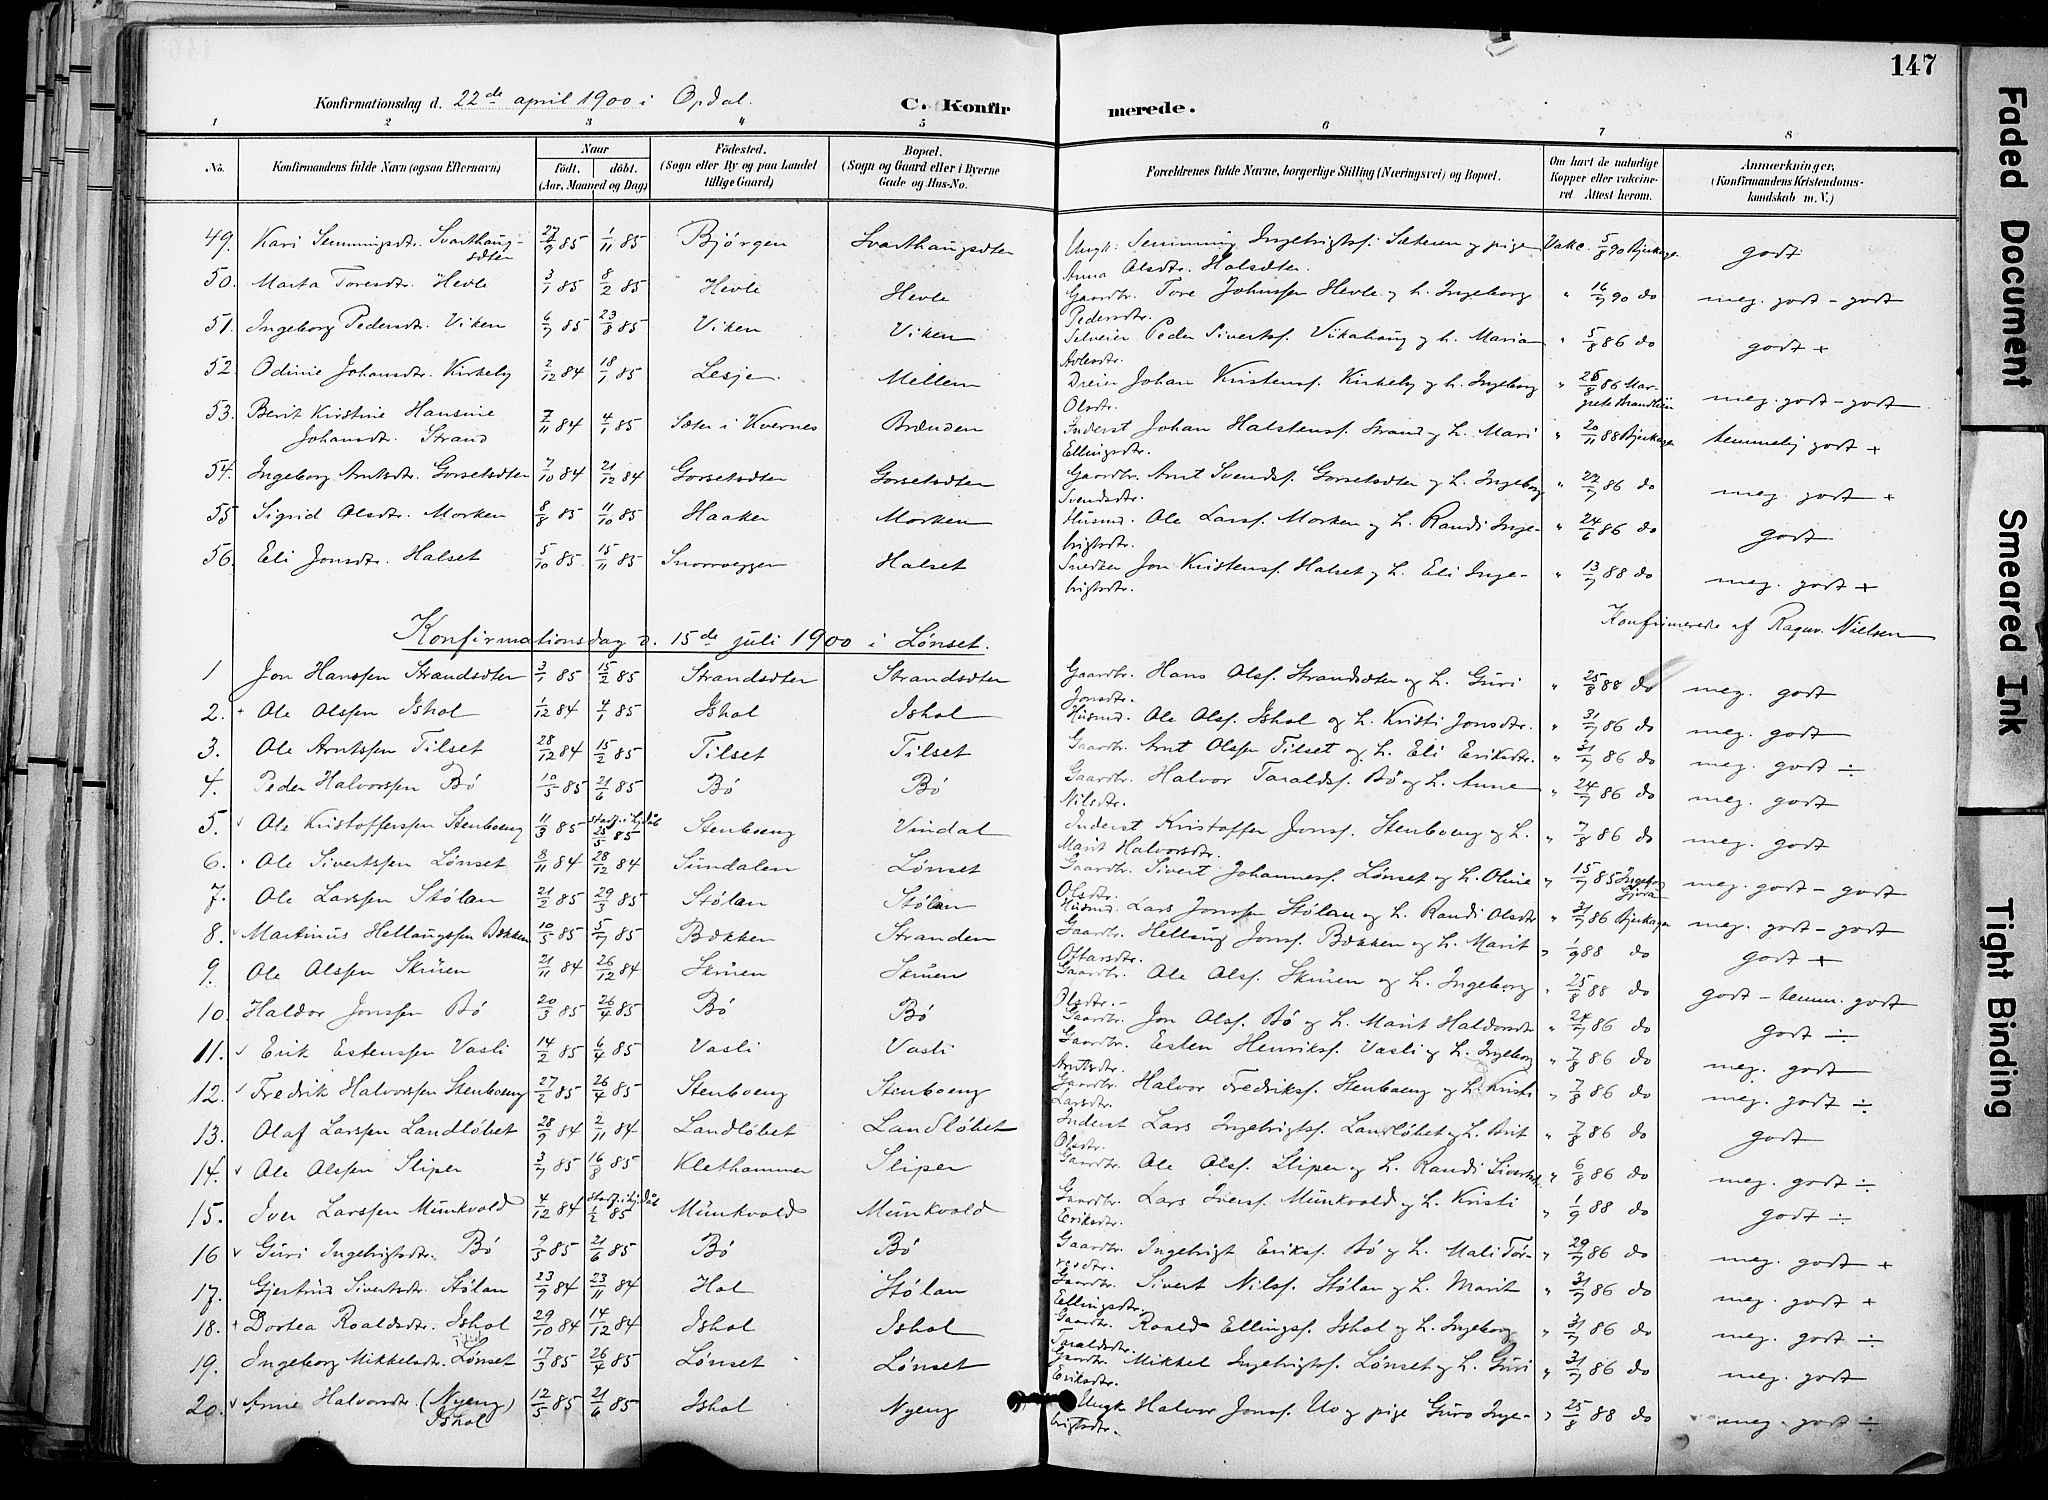 147
Konfirmationsdag d. 22de april 1900 i Opdal. C. Konfirmerede.
1 2 3 4 5 6 7 8
No. Konfirmandens fulde Navn (ogsaa Efternavn) Naar født. døbt. (Aar, Maaned og Dag) Fødested. (Sogn eller By og paa Landet tillige Gaard) Bopæl. (Sogn og Gaard eller i Byerne Gade og Hus-No. Forældrenes fulde Navne, borgerlige Stilling (Næringsvei) og Bopæl. Om havt de naturlige Kopper eller vakcineret Attest herom. Anmærkninger, (Konfirmandens Kristendomskundskab m. V.)
49. Kari Semmingsdtr. Svarthaugsdten 27/9 85 1/11 85 Bjørgen Svarthaugsdten Ungk. Semming Ingebrigtsf. Sæteren og pige Anna Olsdtr. Halsdten. Vakc. 5/8 90 Bjerkager godt
50. Marta Toresdtr. Hevle 3/1 85 8/2 85 Hevle Hevle Gaardbr. Tore Johnssen Hevle og h. Ingeborg Pedersdtr. " 16/7 90 do meg. godt - godt
51. Ingeborg Pedersdtr. Viken 6/7 85 23/8 85 Viken Viken Selveier Peder Sivertsf. Vikahaug og h. Maria " 5/8 86 do godt +
52 Odine Johansdtr. Kirkeby 2/12 84 18/1 85 Lesje Mellem Dreier Johan Kristensf. Kirkeby og h. Ingeborg Olsdtr. " 26/8 86 Margrete Brandlien meg. godt - godt
53. Berit Kirstine Hansine Johansdtr. Strand 7/11 84 4/1 85 Sæter i Kvernes Brænden Inderst Johan Halstensf. Strand og h. Mari Ellingsdtr. " 20/11 88 Bjerkager temmelig godt +
54. Ingeborg Arntsdtr. Gorsetsdten 7/10 84 21/12 84 Gorsetsdten Gorsetsdten Gaardbr. Arnt Svendsf. Gorsetsdten og h. Ingeborg Svendsdtr. " 27/7 86 do meg. godt +
55 Sigrid Olsdtr. Morken 8/8 85 11/10 85 Haaker Morken Husmd. Ole Larsf. Morken og h. Randi Ingebrigtsdtr. " 24/6 86 do godt
56. Eli Jonsdtr. Halset 5/10 85 15/11 85 Snorroeggen Halset Snedker Jon Kristensf. Halset og h. Eli Ingebrigtsdtr. " 13/7 88 do meg. godt +
Konfirmerede af Ragnv. Nielsen
Konfirmationsdag d. 15de juli 1900 i Lønset.
1 Jon Hanssen Strandsdten 3/1 85 15/2 85 Strandsdten Strandsdten Gaardbr. Hans Olsf. Strandsdten og h. Guri Jonsdtr. " 25/8 88 do meg. godt
2. + Ole Olssen Ishol 1/12 84 4/1 85 Ishol Ishol Husmd. Ole Olsf. Ishol og h. Kristi Jonsdtr. " 31/7 86 do meg. godt
3. Ole Arntssen Tilset 28/12 84 15/2 85 Tilset Tilset Gaardbr. Arnt Olssen Tilset og h. Eli Eriksdtr. " 31/7 86 do meg. godt ÷
4. Peder Halvorssen Bö 10/5 85 21/6 85 Bö Bö Gaardbr. Halvor Taraldsf. Bö og h. Anne Nilsdtr. " 24/7 86 do meg. godt
5. Ole Kristofferssen Stenboeng 11/3 85 25/5 85 Stenboeng Vindal Inderst Kristoffer Jonsf. Stenboeng og h. Marit Halvorsdtr. " 7/8 86 do meg. godt
6. Ole Sivertssen Lønset 8/11 84 28/12 84 Sundalen Lønset Gaardbr. Sivert Johannesf. Lønset og h. Oline Olsdtr. " 15/7 85 Ingeborg Gjøra meg. godt - godt
7. Ole Larssen Stølan 21/2 85 29/3 85 Stølan Stølan Husmd. Lars Jonssen Stølan og h. Randi Olsdtr " 31/7 86 Bjerkager meg. godt - godt
8. Martinus Hellaugssen Bækken 10/5 85 5/7 85 Bækken Stranden Gaardbr. Hellaug Jonsf. Bækken og h. Marit Ottarsdtr. " 1/9 88 do godt +
9. Ole Olssen Skruen 21/11 84 26/12 84 Skruen Skruen Gaardbr. Ole Olsf. Skruen og h. Ingeborg Olsdtr. " 25/8 88 do godt - temm. godt
10. Haldor Jonssen Bö 20/3 85 26/4 85 Bö Bö Gaardbr. Jon Olsf. Bö og h. Marit Haldorsdtr " 24/7 86 do godt ÷
11. Erik Estenssen Vasli 14/2 85 6/4 85 Vasli Vasli Gaardbr. Esten Henriksf. Vasli og h. Ingeborg Arntsdtr. " 7/8 86 do meg. godt
12. Fredrik Halvorssen Stenboeng 27/2 85 26/4 85 Stenboeng Stenboeng Gaardbr. Halvor Fredriksf. Stenboeng og h. Kristi Larsdtr. " 7/8 86 do meg. godt ÷
13. Olaf Larssen Landløbet 28/9 84 2/11 84 Landløbet Landløbet Inderst Lars Ingebrigtsf. Landløbet og h. Brit Olsdtr. " 7/8 86 do godt
14. Ole Olssen Sliper 3/7 85 16/8 85 Klethammer Sliper Gaardbr. Ole Olsf. Sliper og h. Randi Sivertsdt. " 6/8 86 do meg. godt ÷
15. Iver Larssen Munkvold 4/12 84 1/2 85 Munkvold Munkvold Gaardbr. Lars Iversf. Munkvold og h. Kristi Eriksdtr. " 1/9 88 do godt ÷
16 Guri Ingebrigtsdtr. Bö 9/5 85 21/6 85 Bö Bö Gaardbr. Ingebrigt Eriksf. Bö og h. Mali Toresdtr. " 29/7 86 do meg. godt +
17. Gjertrud Sivertsdtr. Stølan 23/9 84 23/11 84 Hol Stølan Gaardbr. Sivert Nilsf. Stølan og h. Marit Ellingsdtr. " 31/7 86 do meg. godt +
18. + Dortea Roaldsdtr. Ishol 29/10 84 14/12 84 Ishol Ishol Gaardbr. Roald Ellingsf. Ishol og h. Ingeborg Taraldsdtr. " 31/7 86 do meg. godt ÷
19. Ingeborg Mikkelsdtr. Lønset 17/3 85 26/4 85 Lønset Lønset Gaardbr. Mikkel Ingebrigtsf. Lønset og h. Guri Eriksdtr. " 31/7 86 do meg. godt
20. Anne Halvorsdtr. (Nyeng) Ishol 12/5 85 21/6 85 Ishol Nyeng Ungk. Halvor Jonsf. Uv og pige Guro Ingebrigtsdtr. " 25/8 88 do meg. godt ÷
Faded Document
Smeared Ink
Tight Binding